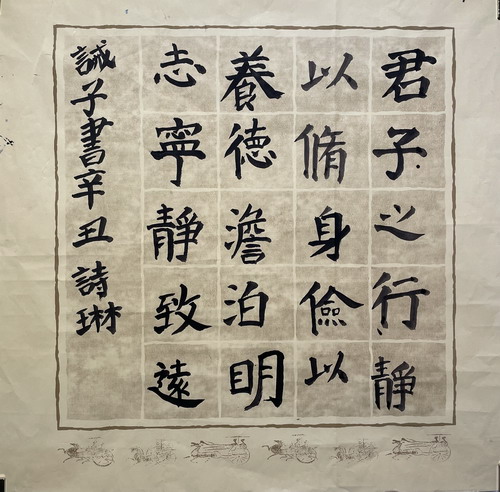 君子之行靜
以脩身儉以
養德澹泊明
志寧靜致遠
誡子書辛丑 詩琳